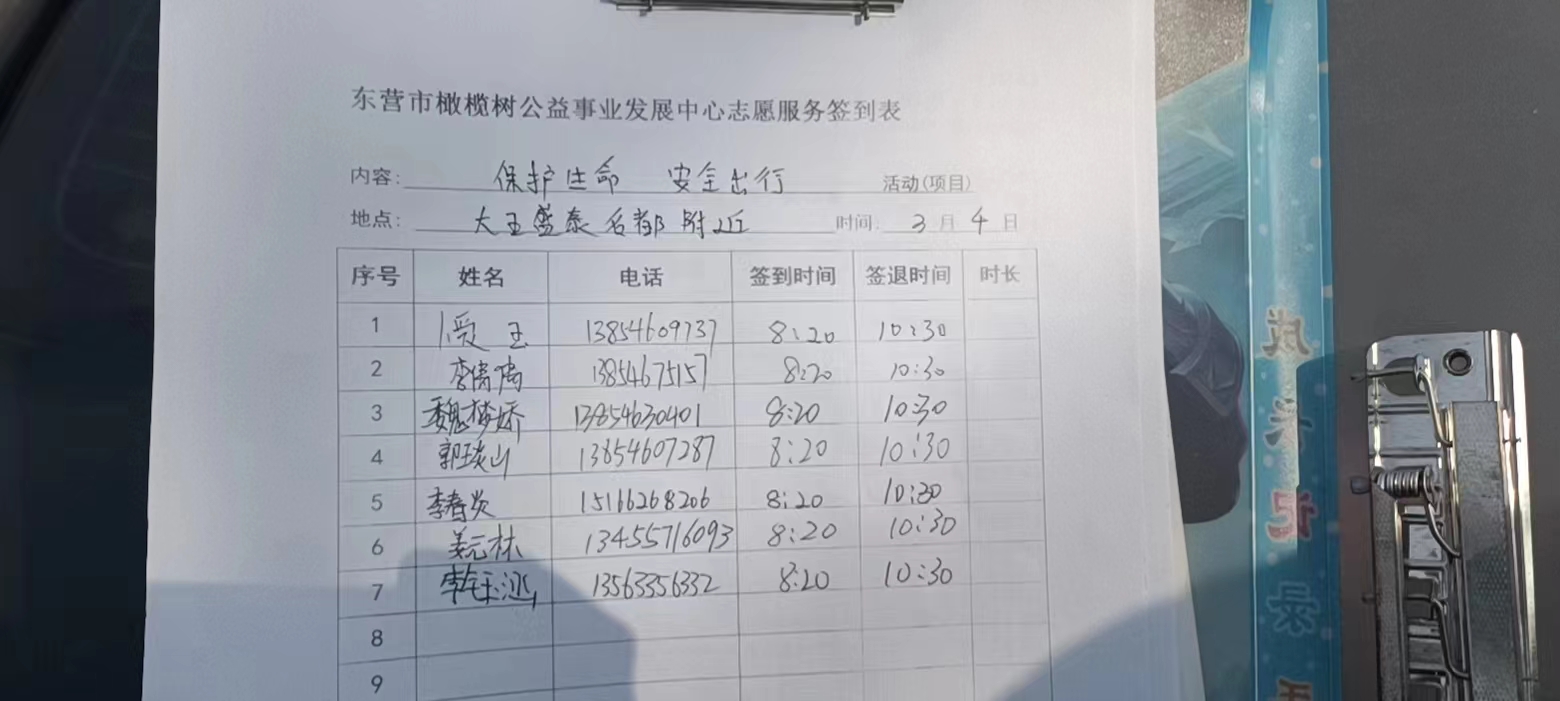 东营市橄榄树公益事业发展中心志愿服务签到表
内容: 保护生命 安全出行 活动(项目)
地点: 大王盛泰名都附近 时间: 3月4日
序号 姓名 电话 签到时间 签退时间 时长
1 13854609737 8:20 10:30
2 李倩倩 13854675157 8:20 10:30
3 魏梦娇 13854630401 8:20 10:30
4 郭琰山 13854607287 8:20 10:30
5 李春炎 15166268206 8:20 10:30
6 姜元林 13455716093 8:20 10:30
7 13563356332 8:20 10:30
8
9
成长记录